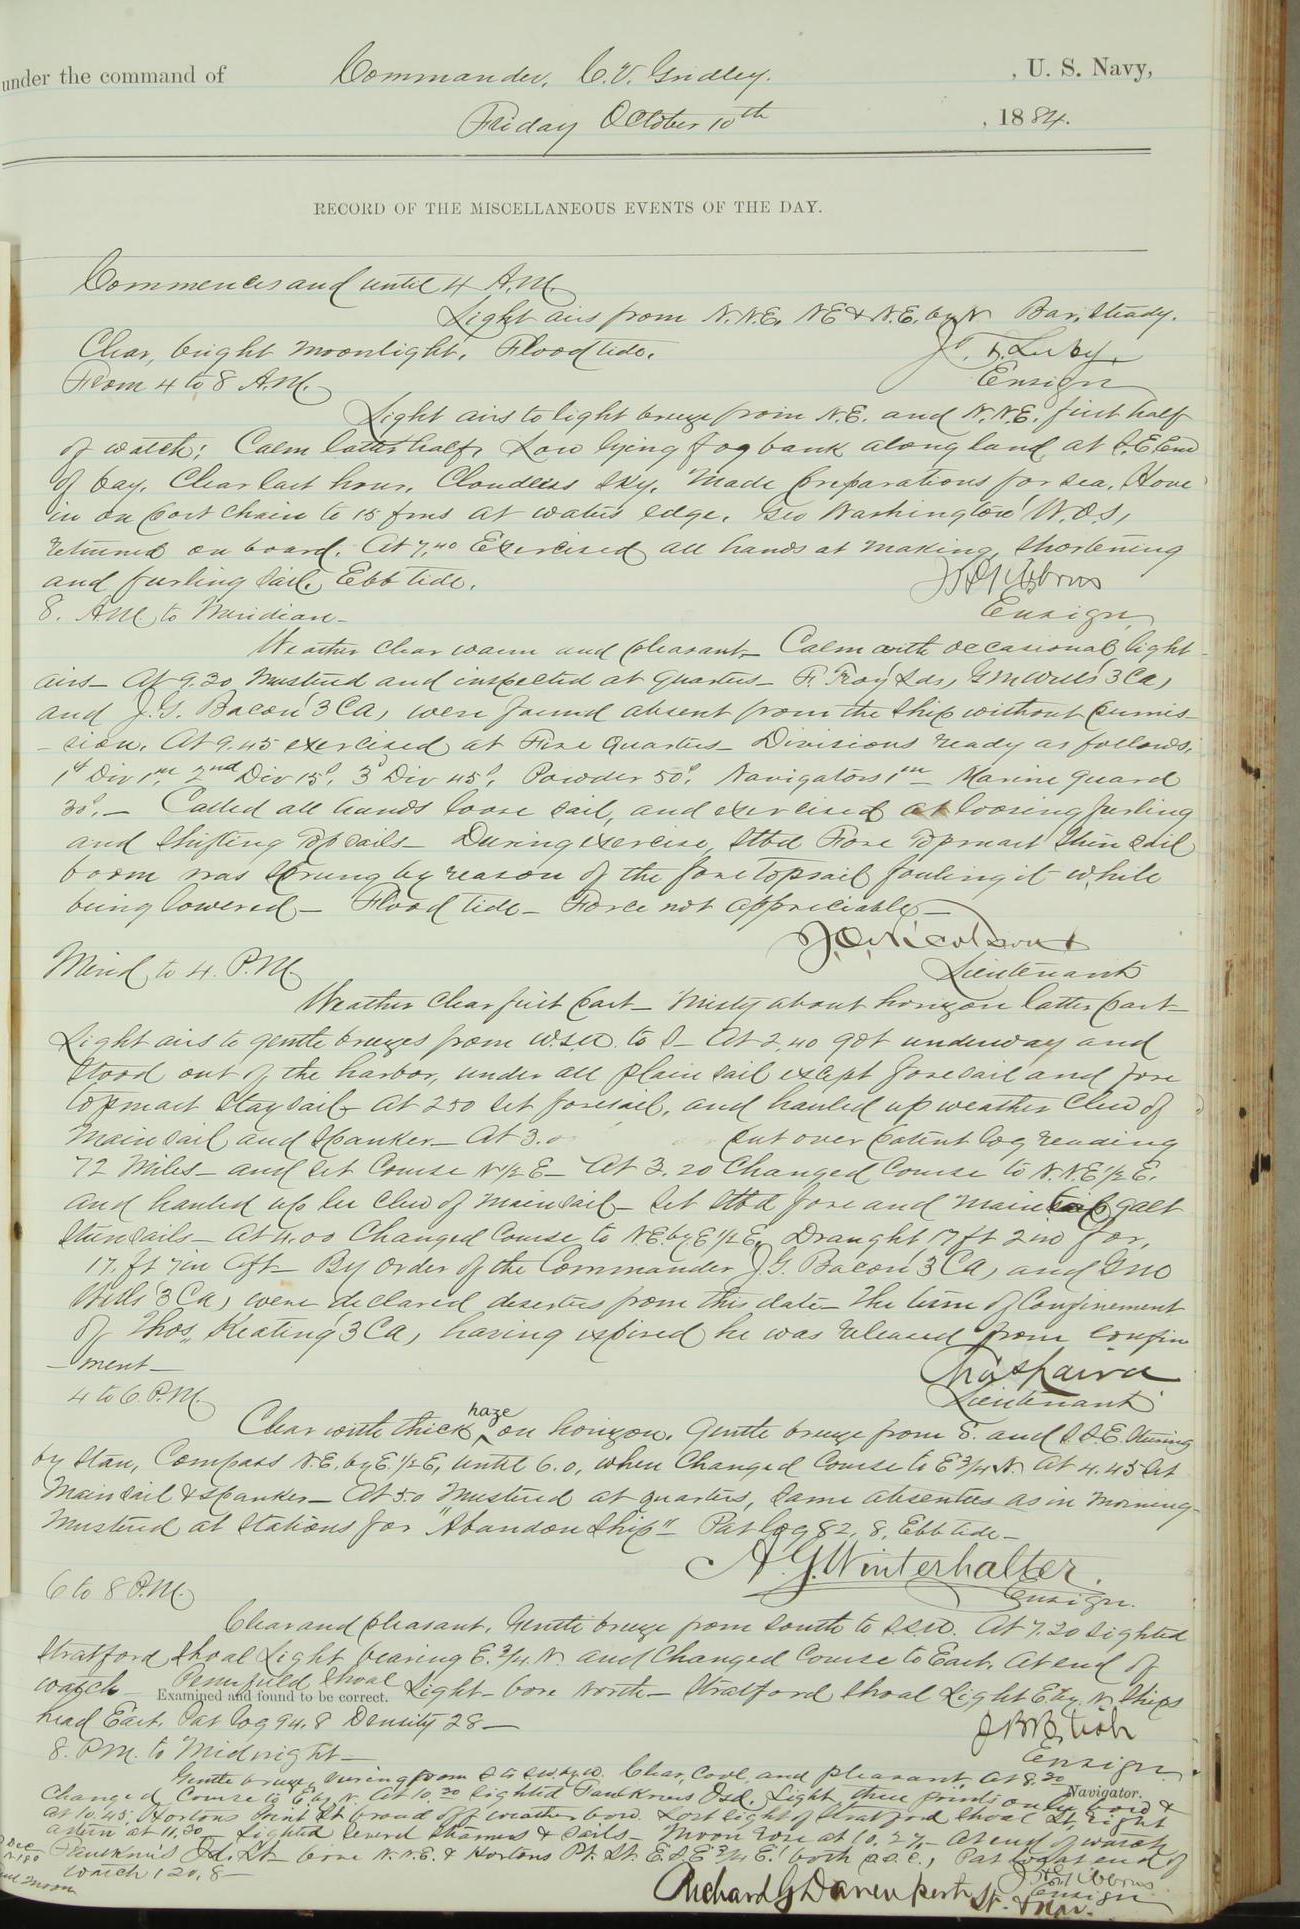 under the command of Commander, C. V. Gridley. , U. S. Navy,
Friday October 10th , 1884.
RECORD OF THE MISCELLANEOUS EVENTS OF THE DAY.
Commences and until 4 A.M.
Light airs from N.N.E, NE & N.E. by N Bar. Steady.
Clear, bright moonlight. Flood tide.
From 4 to 8 A.M.
Ensign
Light airs to light breeze from N.E. and N.N.E. first half
of watch; Calm latter half. Low lying fog bank along land at S.E. End
of bay. Clear last hour. Cloudless sky. Made preparations for sea. Hove
in on port chain to 15 fms at water's edge. Geo Washington W.O.S,
returned on board. At 7.40 Exercised all hands at making, shortening
and furling sail. Ebb tide.
8. A.M. to Meridian-
Ensign
Weather clear warm and pleasant- Calm with occasional light
airs- At 9.30 Mustered and inspected at Quarters- F. Troy Lds,
and J.G. Bacon 3 Ca, were found absent from the Ship without permis-
-sion. At 9.45 exercised at Fire Quarters- Divisions ready as follows,
1st Div 1m, 2nd Div 15s, 3d Div 45s, Powder 50s, Navigators 1m Marine Guard
30s.- Called all hands loose sail, and exercised at loosing furling
and shifting topsails- During exercise, Stbd Fore topmast Stun sail
boom was sprung by reason of the fore topsail fouling it while
being lowered- Flood tide- Force not appreciable-
Lieutenant
Merid to 4. P.M
Weather clear first part- Misty about horizon latter part-
Light airs to gentle breezes from W.S.W. to S- At 2.40 got underway and
stood out of the harbor, under all plain sail except foresail and fore
topmast staysail- At 2 50 set foresail, and hauled up weather clew of
mainsail and Spanker- At 3.0 put over patent log reading
72 Miles- and set Course N 1/2 E- At 3.20 Changed Course to N.N.E 1/2 E.
and hauled up lee clew of mainsail- Set Stbd fore and main galt
Stunsails- At 4.00 Changed Course to N.E. by E 1/2 E. Draught 17 ft 2 in for,
17. ft 7 in aft- By order of the Commander J.G. Bacon 3 Ca, and Geo
Wells 3 Ca, were declared deserters from this date- The term of Confinement
of Thos, Keating 3 Ca, having expired he was released from confin
-ment-
4 to 6 P.M.
Lieutenant
Clear with thick haze on horizon. Gentle breeze from S. and S.S.E. Steering
by Stan, Compass N.E. by E. 1/2 E, until 6.0, when Changed Course to E 3/4 N. At 4.45 Set
Mainsail & Spanker- At 5.0 Mustered at quarters, Same absentees as in Morning-
Mustered at Stations for "Abandon Ship"- Pat log 82.8. Ebb tide-
A. G. Winterhalter.
Ensign.
6 to 8 P.M.
Clear and pleasant. Gentle breeze from South to SSW. At 7.20 sighted
Stratford Shoal Light bearing E. 3/4. N. and Changed Course to East. At end of
watch Penfield Shoal Light- bore North- Stratford Shoal Light E by. N. Ships
Examined and found to be correct.
head East. Pat log 94.8 Density 28-
8. P.M. to Midnight-
Ensign
Gentle breeze, veering from S to SW by W. Clear, cool and pleasant. At 8.20
Navigator.
Changed Course to E by N. At 10.20 sighted Faulkners Isd. Light, three points on lee bow &
at 10.45 Hortons Point Lt. broad off weather bow. Lost sight of Stratford Shoal Lt, right
astern at 11.30 Sighted several Steamers & sails- Moon rose at 10.27- At end of watch
Faulkners Isd. Lt- bore N.N.E. & Hortons Pt. Lt. E.S.E 3/4 E. both p.s.c., Pat log at end of
watch 120.8-
Ensign
Richard G Davenport Lt. & Nav.